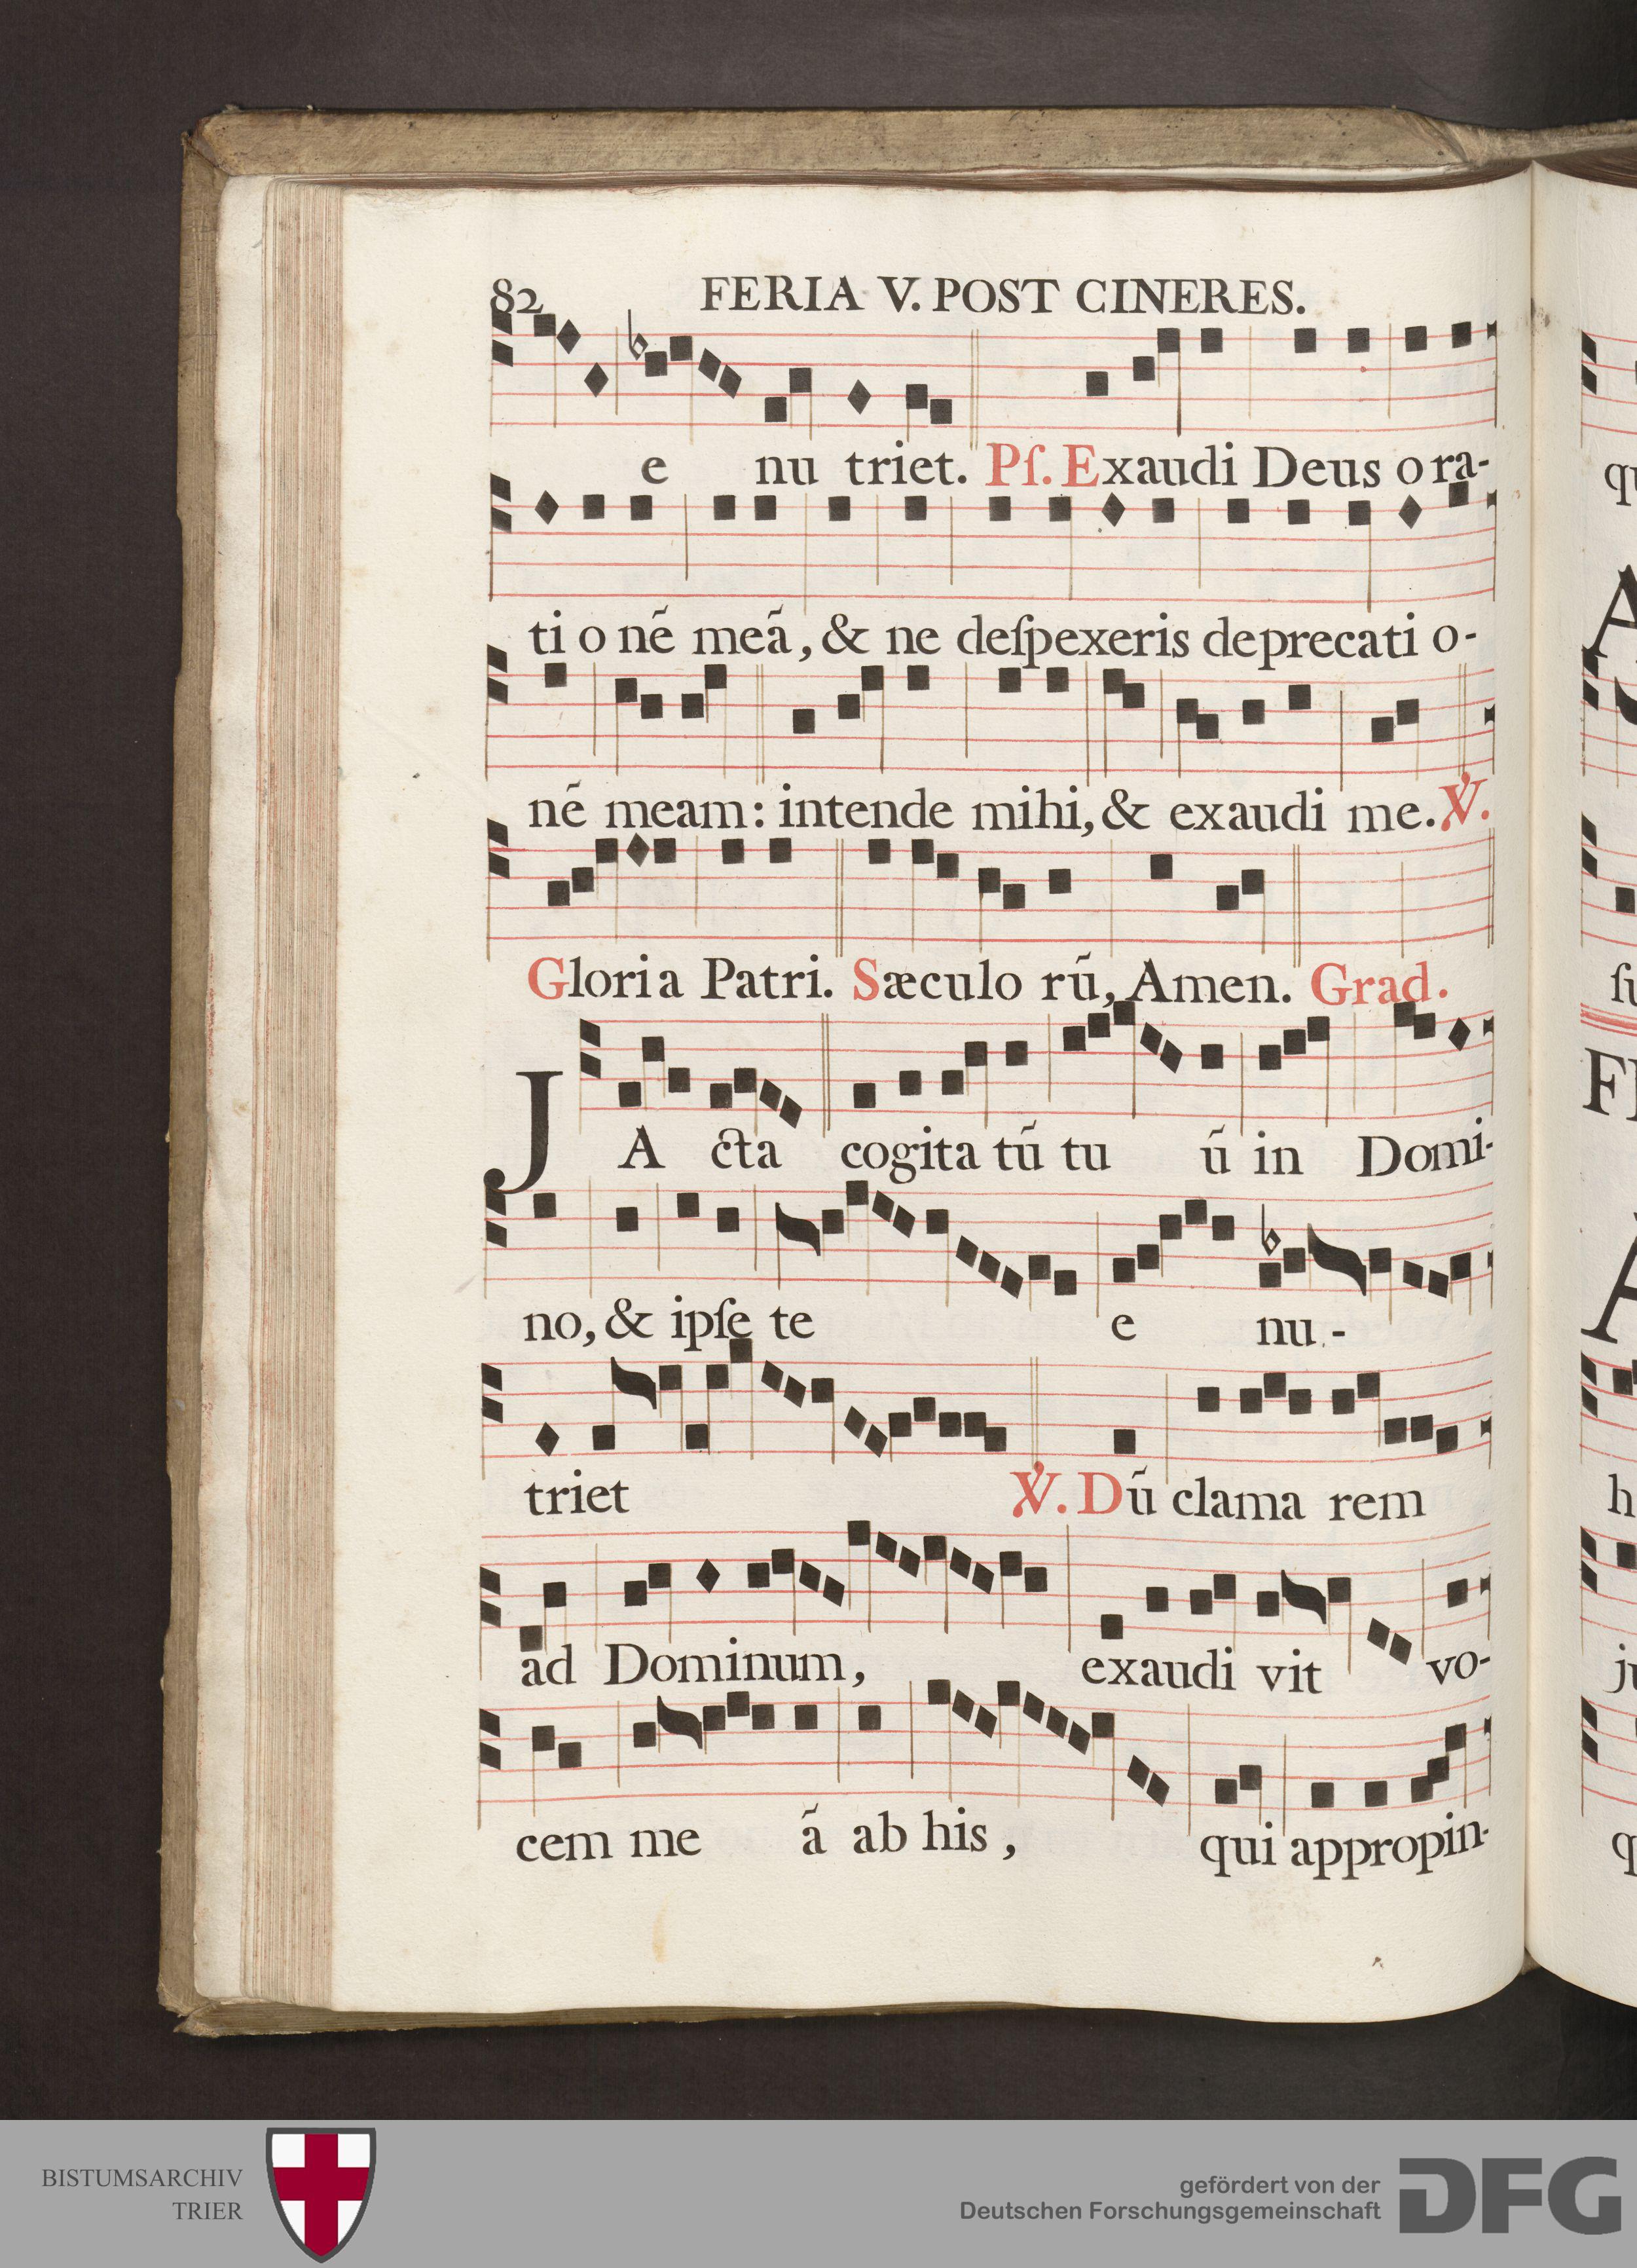 82 FERIA V. POST CINERES.
e nu triet. Pſ. Exaudi Deus o ra-
ti o nẽ meã, & ne deſpexeris deprecati o-
nẽ meam: intende mihi, & exaudi me. ℣.
Gloria Patri. Sæculo rũ, Amen. Grad.
JA cta cogita tũ tu ũ in Domi-
no, & ipſe te e nu-
triet ℣. Dũ clama rem
ad Dominum, exaudi vit vo-
cem me ã ab his, qui appropin-
BISTUMSARCHIV
TRIER
gefördert von der
Deutschen Forschungsgemeinschaft
DFG